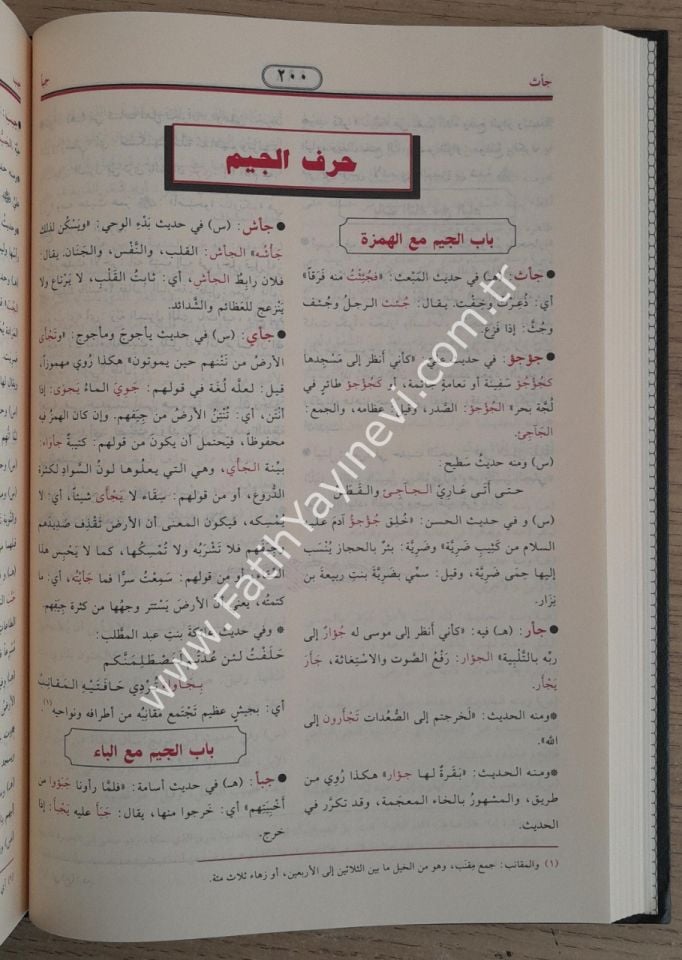 جأث
٢٠٠
جبأ
حرف الجيم
باب الجيم مع الهمزة
● جأث: (هـ) في حديث المَبْعث: «فجُئِثْتُ منه فَرَقاً»
أي: ذُعِرْتُ وخِفْت. يقال: جُئث الرجلُ وجُئف
وجُثَّ: إذا فَزِع.
● جؤجؤ: في حديث عليّ: «كأني أنظر إلى مَسْجِدها
كجُؤْجُؤ سَفِينة أو نَعامةٍ جاثمة، أو كجُؤْجُؤ طائرٍ في
لُجَّة بحر» الجُؤْجُؤ: الصدر، وقيل: عظامه، والجمع:
الجَآجِئ.
(س) ومنه حديثُ سَطيح:
حتى أتَى عَارِيَ الجآجِئ والقَطَن
(س) و في حديث الحسن: «خُلق جُؤْجؤ آدمَ عليه
السلام من كَثِيبِ ضَرِيَّة» وضَرِيَّة: بئرٌ بالحجاز يُنْسَب
إليها حِمَى ضَرِيَّة، وقيل: سمِّي بضَرِيَّة بنتِ ربيعةَ بن
نِزَار.
● جأر: (هـ) فيه: «كأني أنظر إلى موسى له جُؤارٌ إلى
ربِّه بالتَّلْبِية» الجؤار: رَفْعُ الصَّوت والاسْتِغاثة، جَأَرَ
يَجْأر.
* ومنه الحديث: «لَخرجتم إلى الصُّعُدات تَجْأَرون إلى
الله».
* ومنه الحديث: «بَقَرةٌ لها جؤار» هكذا رُوِي من
طريق، والمشهورُ بالخاء المعجمة، وقد تكرَّر في
الحديث.
● جأش: (س) في حديث بَدْءِ الوحي: «ويَسْكُن لذلك
جَأْشُه» الجأش: القلب، والنَّفْس، والجَنَان. يقال:
فلان رابِطُ الجأش، أي: ثابتُ القَلْب، لا يَرتاع ولا
يَنْزعج للعَظائم والشَّدائد.
● جأي: (س) في حديث يأجوجَ ومأجوج: «وتَجْأَى
الأرضُ من نَتْنِهم حين يموتون» هكذا رُوي مهموزاً،
قيل: لعلَّه لُغة في قولهم: جَوِيَ الماءُ يَجْوَى: إذا
أنْتَن، أي: تُنْتِنُ الأرضُ من جِيَفِهم. وإن كان الهمزُ فيه
محفوظاً، فيَحتمل أن يكونَ من قولهم: كَتيبةٌ جأواء:
بيِّنة الجَأَى، وهي التي يعلُوها لونُ السوادِ لكثرة
الدُّروع، أو من قولهم: سِقَاء لا يَجْأَى شيئاً، أي: لا
يُمْسِكه، فيكون المعنى أن الأرضَ تَقْذِف صَدِيدَهم
وجِيَفَهم فلا تَشْرَبُه ولا تُمْسِكُها، كما لا يَحْبِس هذا
السِّقاء، أو من قولهم: سَمِعْتُ سرّاً فما جَأَيْتُه، أي: ما
كتمتُه، يعني أن الأرضَ يَسْتَتر وجهُها من كثرة جِيَفِهم.
* وفي حديث عاتكة بنتِ عبد المطَّلب:
حَلَفْتُ لئن عُدْتُم لنَصْطَلِمَنَّكم
بِجأواءَ تُرْدِي حَافَتَيْه المقانبُ
أي: بجيش عظيم تَجْتَمع مَقانِبُه من أطرافه ونواحيه(١).
باب الجيم مع الباء
● جبأ: (هـ) في حديث أسامة: «فلمَّا رأونا جَبَؤوا من
أخْبِيَتِهم» أي: خَرجوا منها، يقال: جَبَأ عليه يَجْبأ: إذا
خرج.
(١) والمقانب: جمع مِقنَب، وهو من الخيل ما بين الثلاثين إلى الأربعين، أو زهاء ثلاث مئة.
www.FatihYayinevi.com.tr